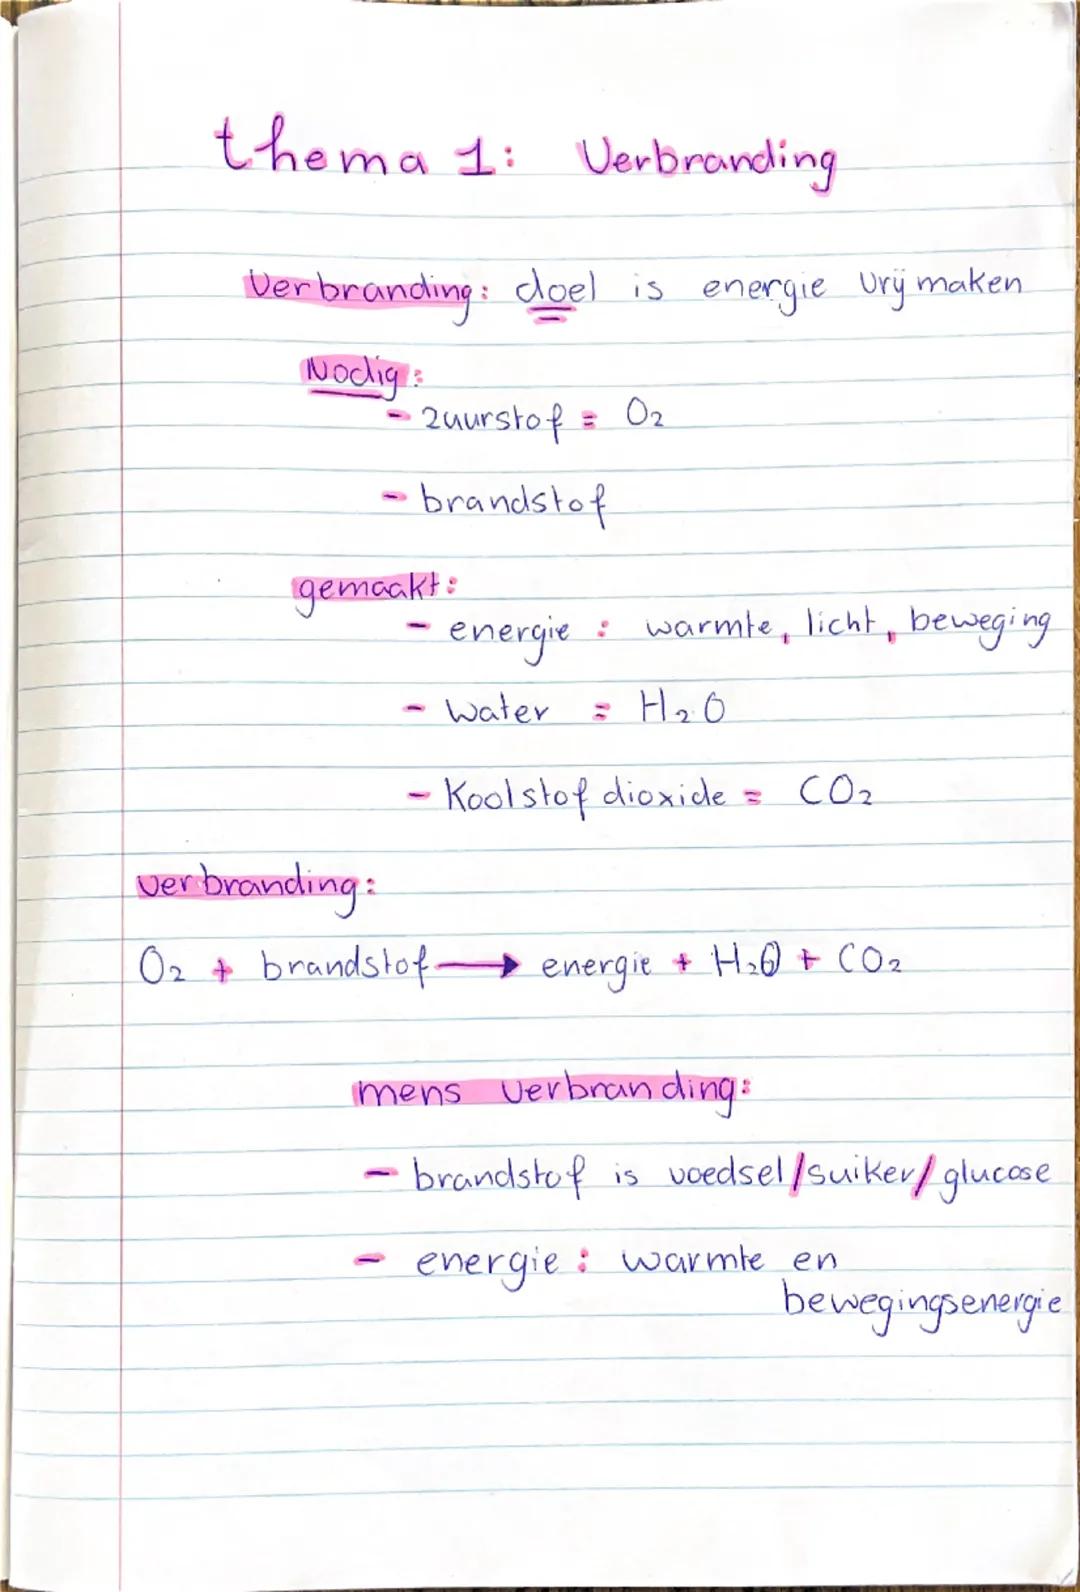 thema 1: Verbranding
Verbranding: doel is energie vrij maken
Nodig:
- zuurstof = O₂
- brandstof
gemaakt:
- energie : warmte, licht, beweging
- water = H₂O
- Koolstof dioxide = CO₂
verbranding:
O₂ + brandstof → energie + H₂O + CO₂
mens verbranding:
- brandstof is voedsel/suiker/glucose
- energie : warmte en
bewegingsenergie